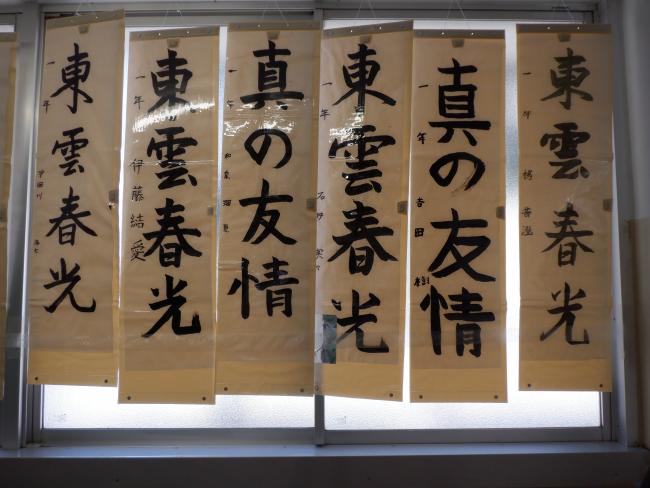 東雲春光
一年
東雲春光
一年 伊藤結愛
真の友情
一年
東雲春光
一年
真の友情
一年 吉田 樹
東雲春光
一年